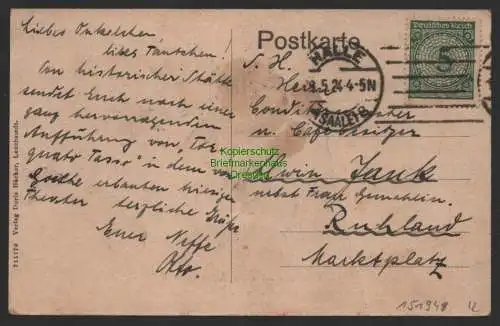 Liebes Onkelchen,
liebes Tantchen!
An historischer Stätte
sendet Euch nach einer
ganz hervorragenden
Aufführung von „Tor-
quato Tasso" in dem von
Goethe erbauten hiesigen
Theater herzliche Grüße
Euer Neffe
Otto.
Postkarte
Deutsches Reich
5
HALLE
5.24 4-5N
(SAALE)
S. H.
Herrn
Konditoreibesitzer
u. Cafébesitzer
Alwin Jank
nebst Frau Gemahlin.
Ruhland
Marktplatz
Kopierschutz
Briefmarkenhaus
Dresden
Verlag Doris Häcker, Lauchstedt.
151948